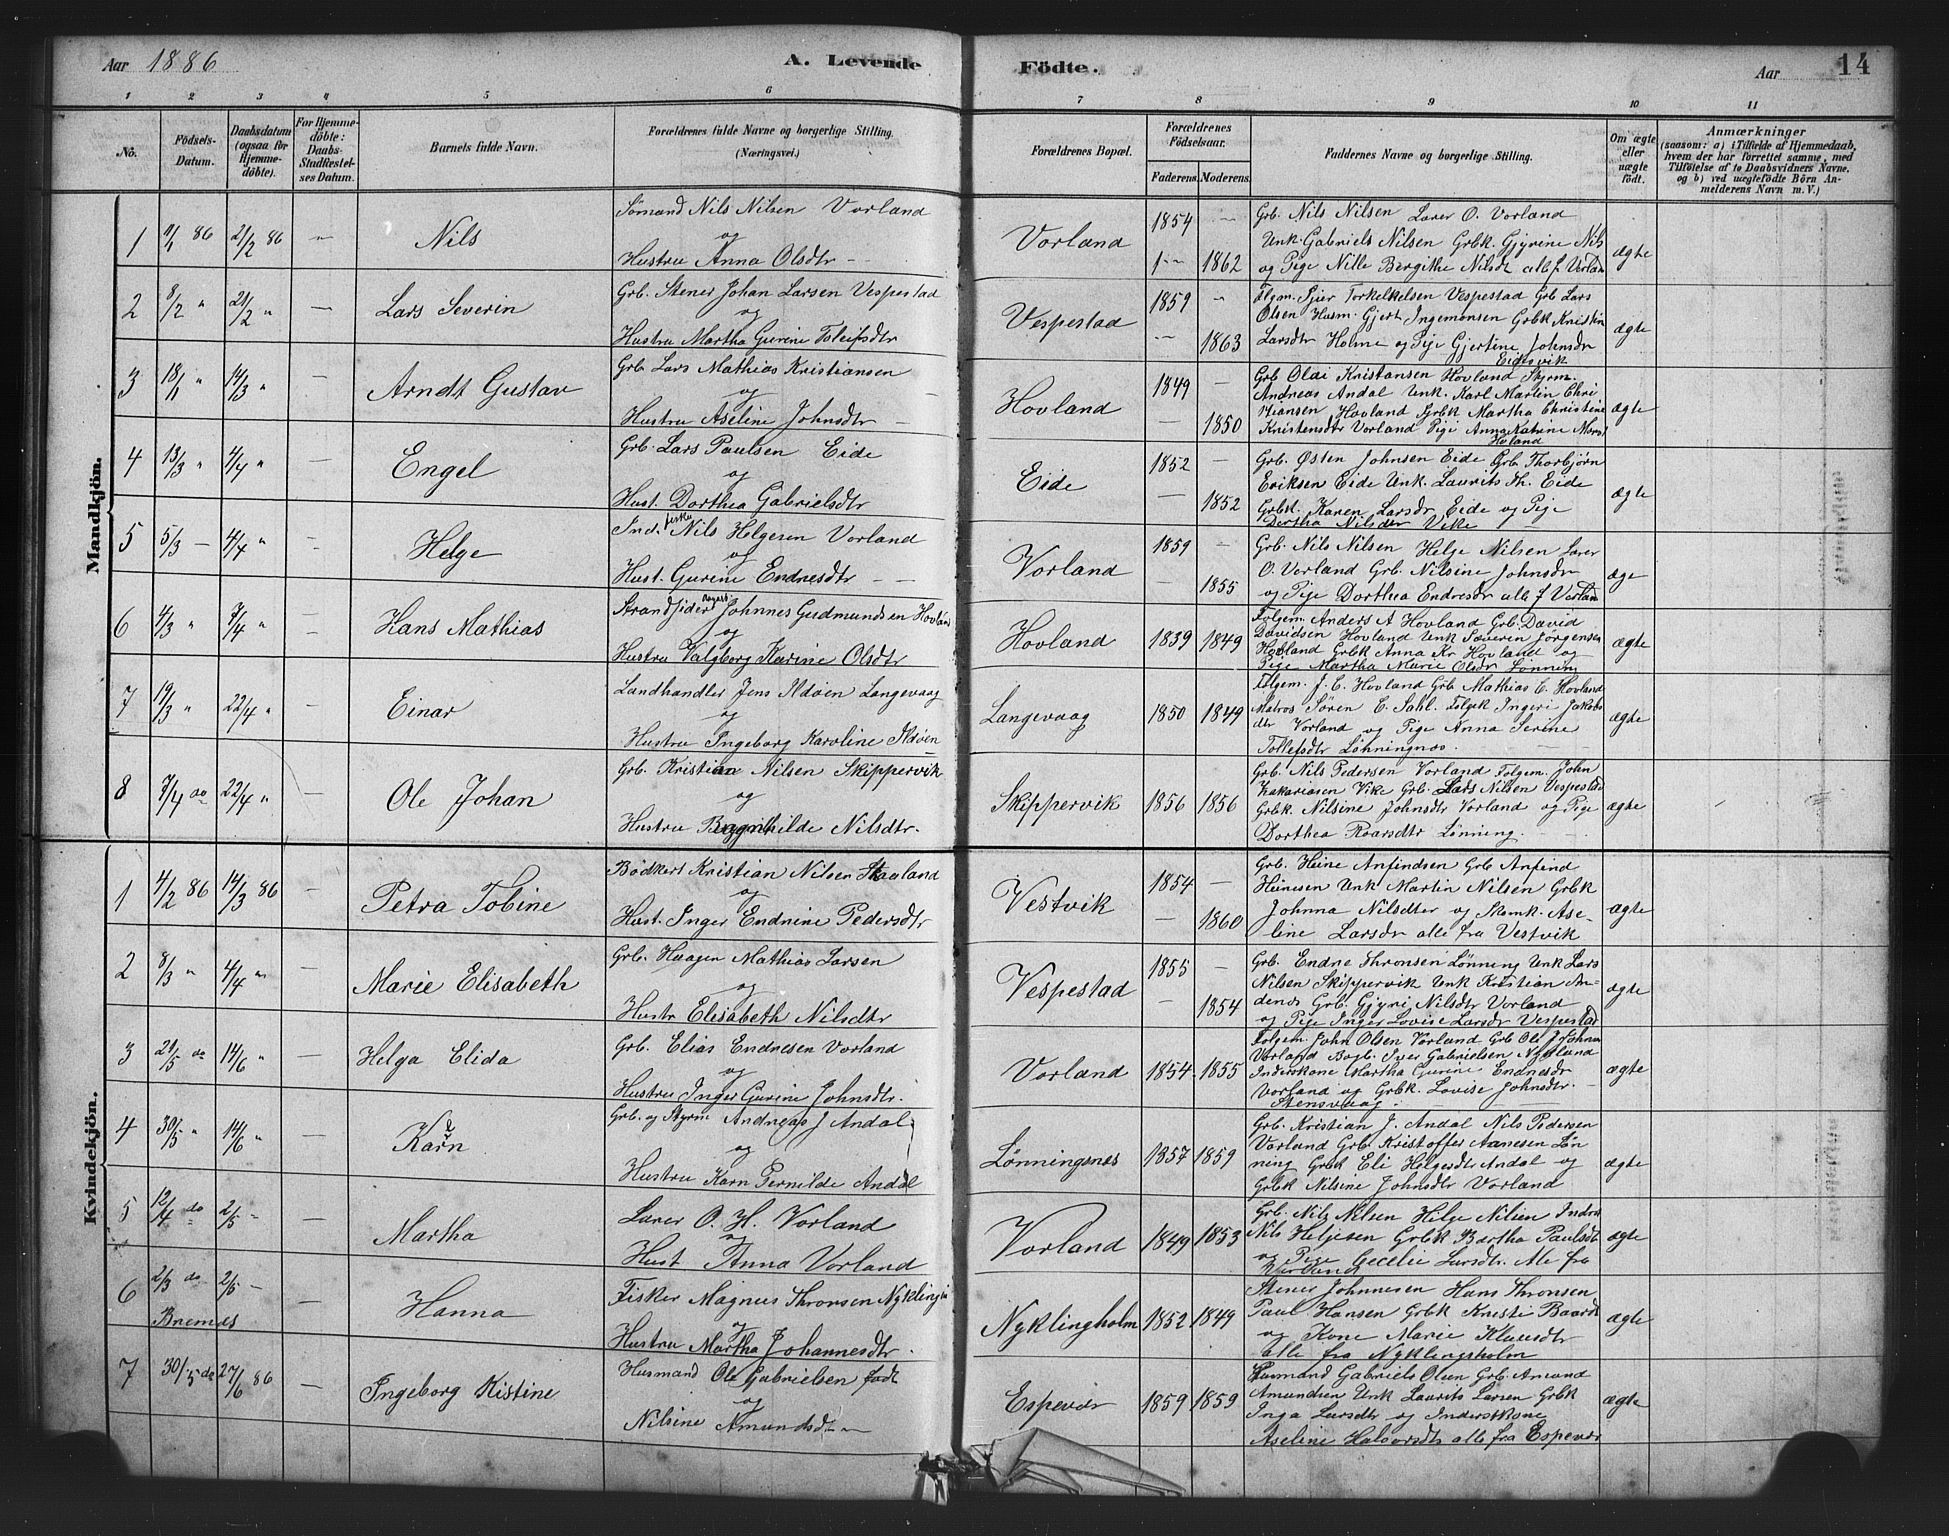 Aar 1886
A. Levende Födte.
Aar 14
1 2 3 4 5 6 7 8 9 10 11
No.
Födsels-Datum.
Daabsdatum (ogsaa for Hjemme-döbte).
For Hjemme-döbte: Daabs-Stadfæstel-ses Datum.
Barnets fulde Navn.
Forældrenes fulde Navne og borgerlige Stilling. (Næringsvei.)
Forældrenes Bopæl.
Forældrenes Födselsaar.
Faderens. Moderens.
Faddernes Navne og borgerlige Stilling.
Om ægte eller uægte födt.
Anmærkninger
(saasom: a) i Tilfælde af Hjemmedaab, hvem der har forrettet samme, med Tilföielse af to Daabsvidners Navne, og b) ved uægtefödte Börn An-melderens Navn m. V.)
Mandkjön.
1 9/1 86 21/2 86 — Nils
Sömand Nils Nilsen Vorland
og
Hustru Anna Olsdtr —
Vorland 1854 1862
Grb. Nils Nilsen Lærer O. Vorland
Unk. Gabriels Nilsen Grbk. Gjyrine Nils
og Pige Nille Bergithe Nilsdt alle f Vorlan
ægte
2 8/2 " 21/2 " — Lars Severin
Grb. Stener Johan Larsen Vespestad
og
Hustru Martha Gurine Toleifsdtr
Vespestad 1859 1863
Olsen Husm. Gjert Ingemonsen Grbk Kristin
Larsdtr Holme og Pige Gjertine Johnsdr
Eidesvik
ægte
3 18/1 " 14/3 " — Arndt Gustav
Grb Lars Mathias Kristiansen
og
Hustru Aseline Johnsdtr —
Hovland 1849 — 1850
Grb Olai Kristansen Hovland Styrm.
Andreas Andal Unk. Karl Martin Chri
stiansen Hovland Grbk Martha Christine
Kristensdtr Vorland Pige Anna Katrine
Hovland
ægte
4 13/3 " 4/4 " — Engel
Grb. Lars Paulsen Eide
og
Hust. Dorthea Gabrielsdtr
Eide 1852 — 1852
Grb. Østen Johnsen Eide Grb Thorbjørn
Eriksen Eide Unk. Laurits Th. Eide
Grbk. Karen Larsdr Eide og Pige
Dortha Nilsdtr Vike
ægte
5 5/3 — 4/4 " — Helge
Nils Helgesen Vorland
og
Hust. Gurine Endresdtr — —
Vorland 1859 — 1855
Grb. Nils Nilsen Helge Nilsen Lærer
O. Vorland Grb. Nilsine Johnsdr
og Pige Dorthea Endresdr alle f Vorlan
ægte
6 4/3 " 4/4 " — Hans Mathias
Strandsider Johnnes Gudmundsen Hovlan
og
Hustru Valgborg Karine Olsdtr
Hovland 1839 1849
Folgem. Anders A Hovland Grb. David
Davidsen Hovland Unk Søverin Jørgensen
Hovland Grbk Anna Kr Hovland og
Pige Martha Marie Olsdr Lønning
ægte
7 19/3 " 22/4 " — Einar
Landhandler Jens Ildøen Langevaag
og
Hustru Ingeborg Karoline Ildøen
Langevaag 1850 1849
Folgem. J. C. Hovland Grb Mathias E. Hovland
Matros Søren E. Dahl. Folgek Ingeri Jakobs
dtr Vorland og Pige Anna Serine
Tollefsdtr Löhningnæs.
ægte
8 7/4 do 22/4 " — Ole Johan
Grb. Kristian Nilsen Skippervik
og
Hustru Nilsdtr.
Skippervik 1856 1856
Grb. Nils Pedersen Vorland Folgem. John
Zakariasen Vike Grb. Lars Nilsen Vespestad
Grbk. Nilsine Johnsdtr Vorland og Pige
Dorthea Roarsdtr Lønning.
ægte
Kvindekjön.
1 4/2 86 14/3 86 — Petra Tobine
Bödkert Kristian Nilsen
og
Hust. Inger Endrine Pedersdtr
Vestvik 1854 — 1860
Grb. Heine Anfindsen Grb Anfind
Heinesen Unk Martin Nilsen Grbk
Johnna Nilsdter og Skomk. Ase-
line Larsdr alle fra Vestvik
ægte
2 8/3 " 4/4 " — Marie Elisabeth
Grb. Haagen Mathias Larsen
og
Hustr Elisabeth Nilsdtr
Vespestad 1855 — 1854
Grb. Endre Thronsen Lønning Unk Lars
Nilsen Skippervik Unk Kristian An-
dends Grb. Gjyri Nilsdtr Vorland
og Pige Inger Lovise Larsdr Vespestad
ægte
3 21/5 do 14/6 " — Helga Elida
Grb. Elias Endresen Vorland
og
Hustru Inger Gurine Johnsdtr.
Vorland 1854 1855
Folgem. John Olsen Vorland Grb Ole J
Vorland Bogb. Iver Gabrielsen Nysund
Inderstkone Martha Gurine Endresdr
Vorland og Grbk. Lovise Johnsdtr.
Stensvaag
ægte
4 30/5 " 14/6 " — Karn
Grb. og Styrm Andreas J Andal
og
Hustru Karn Pernilde Andal
Lønningsnæs 1857 1859
Grb. Kristian J. Andal Nils Pedersen
Vorland Grb. Kristoffer Aanesen Løn
ning Grbk Eli Helgesdtr Andal og
Grbk Nilsine Johnsdtr Vorland
ægte
5 12/4 do 2/5 " — Martha
Lærer O. H. Vorland
og
Hust Anna Vorland
Vorland 1849 1853
Grb. Nils Nilsen Helge Nilsen Inderst
Nils Helgesen Grbk Bertha Paulsdt
og Pige Cecelie Larsdtr. Alle fra
Vorland
ægte
6 2/3 do 2/5 — — Hanna
Bremnes
Fisker Magnus Thronsen Nyklingh
og
Hustru Martha Johannesdtr.
Nyklingholm 1852 1849
Stener Johnnesen Hans Thronsen
Paul Hansen Grbk Kristi Baards
og Kone Marie Klausdtr
alle fra Nyklingsholm
ægte
7 30/5 do 27/6 86 — Ingeborg Kistine
Husmand Ole Gabrielsen
og
Nilsine Amundsdtr
Espevær 1859 1859
Husmand Gabriels Olsen Grb. Amund
Amundsen Unk Laurits Larsen Grbk
Inga Larsdtr og Inderstkone
Aseline Halvorsdtr alle fra Espevær
ægte